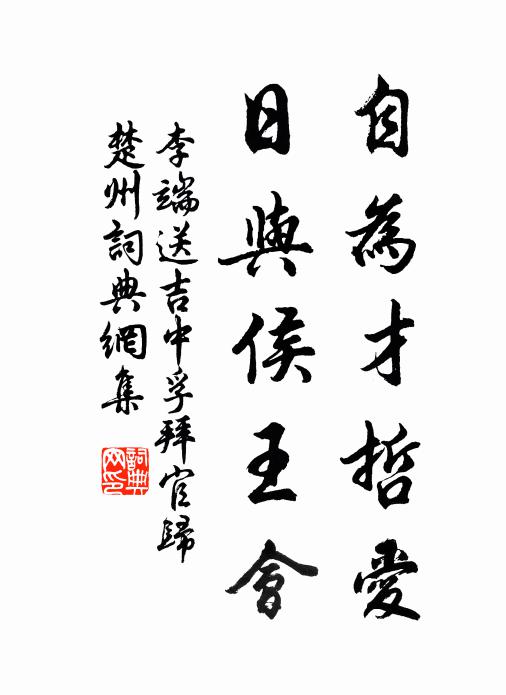 自為才哲愛
日與侯王會
李端送吉中孚拜官歸
楚州詞典網集
詞典网印